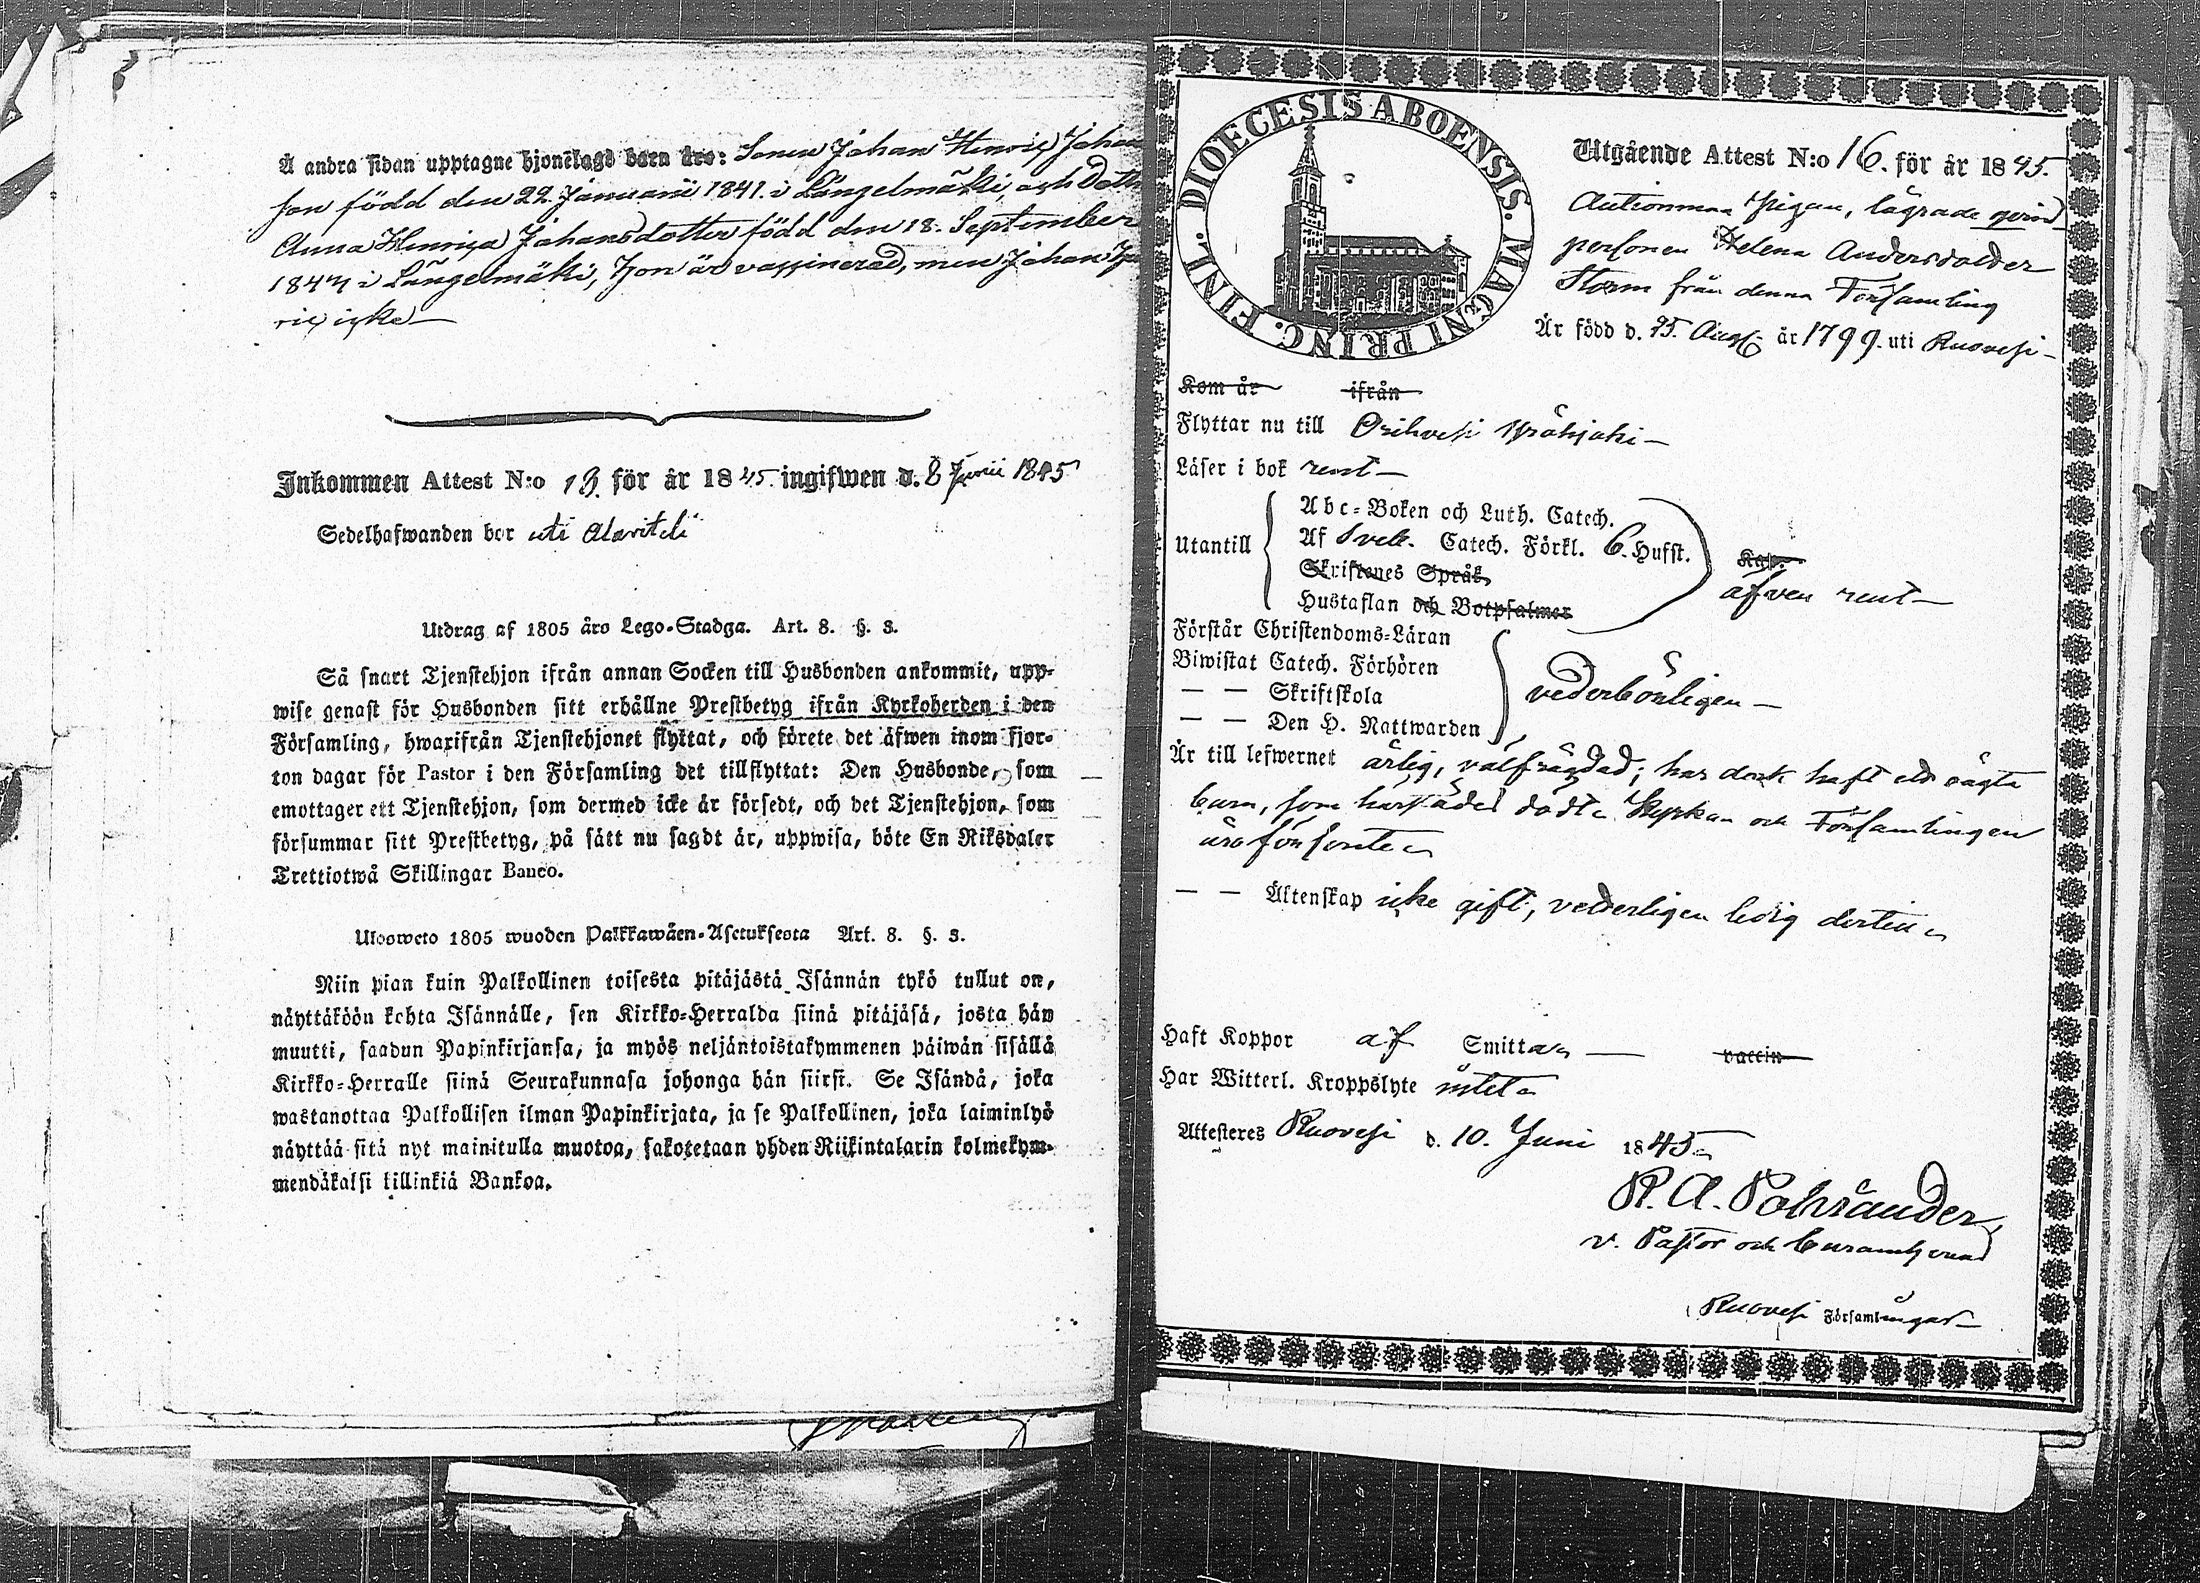 Å andra sidan upptagne hjonelags barn äro: Sonen Johan Henric Johan
son född den 22 Januarii 1841. i Längelmäki, och Dott
Anna Henrica Johansdotter född den 18. September
1844 i Längelmäki, hon är vaccinerad, men Johan Hen
ric icke
Inkommen Attest N:o 13. för år 1845 ingifwen d. 8 Junii 1845
Sedelhafwanden bor uti Alavitili
Utdrag af 1805 års Lego-Stadga. Art. 8. §. 3.
Så snart Tjenstehjon ifrån annan Socken till Husbonden ankommit, upp-
wise genast för Husbonden sitt erhållne Prestbetyg ifrån Kyrkoherden i den
Församling, hwarifrån Tjenstehjonet flyttat, och förete det äfwen inom fjor-
ton dagar för Pastor i den Församling det tillflyttat: Den Husbonde, som
emottager ett Tjenstehjon, som dermed icke är försedt, och det Tjenstehjon, som
försummar sitt Prestbetyg, på sätt nu sagdt är, uppwisa, böte En Riksdaler
Trettiotwå Skillingar Banco.
Uloosweto 1805 wuoden Palkkawäen-Asetuksesta Art. 8. §. 3.
Niin pian kuin Palkollinen toisesta pitäjästä Isännän tykö tullut on,
näyttäköön kohta Isännälle, sen Kirkko-Herralda siinä pitäjäsä, josta hän
muutti, saadun Papinkirjansa, ja myös neljäntoistakymmenen päiwän sisällä
Kirkko-Herralle siinä Seurakunnasa johonga hän siirsi. Se Isändä, joka
wastanottaa Palkollisen ilman Papinkirjata, ja se Palkollinen, joka laiminlyö
näyttää sitä nyt mainitulla muotoa, sakotetaan yhden Riikintalarin kolmekym-
mendäkaksi killinkiä Bankoa.
DIOECESIS ABOENSIS. MAGNI PRINC. FINL.
Utgående Attest N:o 16. för år 1845.
pigan, lägrade qvins
personen Helena Andersdotter
Storm från denna Församling
Är född d. 25. Aug. år 1799. uti Ruovesi
Kom år ifrån
Flyttar nu till Orihvesi
Läser i bok rent
Utantill
Abc-Boken och Luth. Catech.
Af Sveb. Catech. Förkl. 6. Hufst.
Skriftenes Språk
Hustaflan och Botpsalmer
Kap.
äfven rent
Förstår Christendoms-Läran
Biwistat Catech. Förhören
— — Skriftskola
— — Den H. Nattwarden
vederbörligen
Är till lefwernet ärlig, välfrägdad; har dock haft ett oägta
barn, som här födes Kyrkan och Församlingen
äro försonte
— — Äktenskap icke gift, vederligen ledig dertill
Haft Koppor af Smittan vaccin
Har Witterl. Kroppslyte intet
Attesteres Ruovesi d. 10. Juni 1845
v. Pastor och
Ruovesi Församlingar